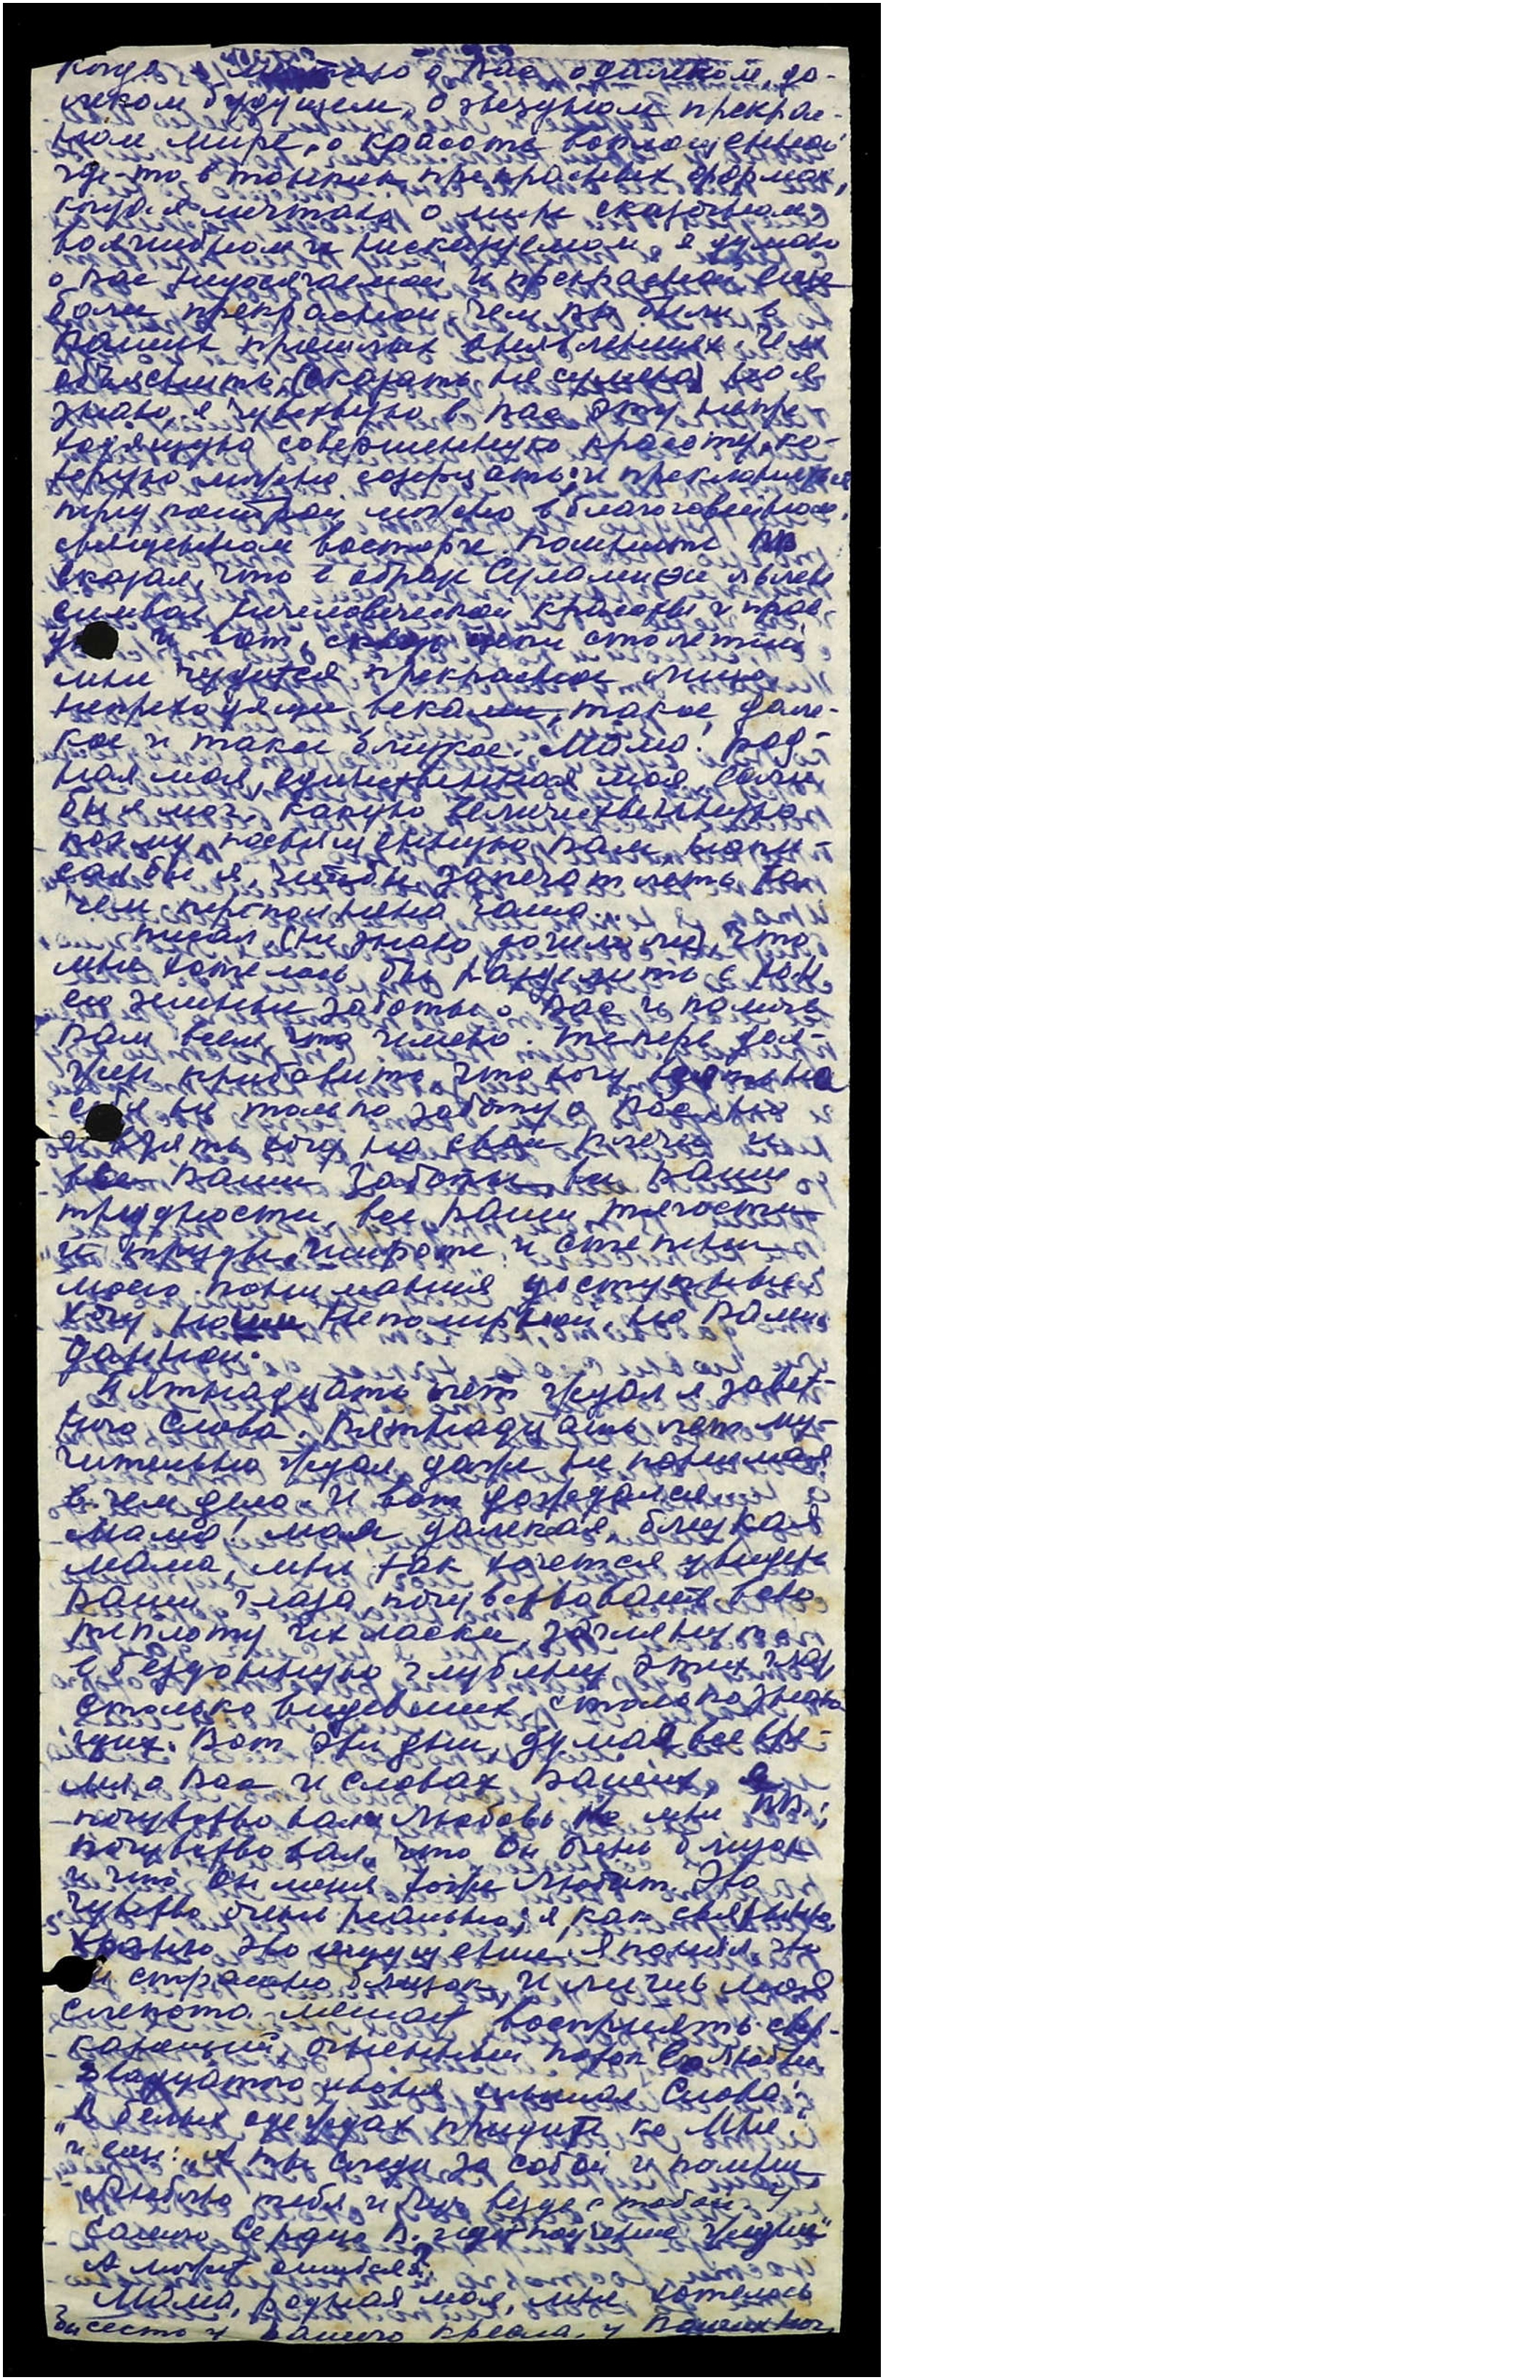 Когда я мечтаю о Вас, о далеком, да-
леком будущем, о звездном прекрас-
ном мире, о красоте воплощенной
где-то в тонких прекрасных формах,
когда я мечтаю о мире сказочном,
волшебном и несказуемом, я думаю
о Вас неугасаемой и прекрасной, еще
более прекрасной, чем Вы были в
Ваших прошлых воплощениях. Чем
объяснить, (сказать не сумею) но я
знаю, я чувствую в Вас эту непре
ходящую совершенную красоту, ко-
торую можно созерцать и преклоняться
перед которой можно в благоговейном,
священном восторге. Помните ВВ
сказал, что в образе Суламифи явлен
символ нечеловеческой красоты и прав
ды и вот, сквозь цепи столетий
мне чудится прекрасное лицо
непреходящее веками, такое дале-
кое и такое близкое. Мама! Род-
ная моя, единственная моя, если
бы я мог, какую величественную
поэму, посвященную Вам, напи-
сал бы я, чтобы запечатлеть то,
чем переполнена чаша.
Писал, (не знаю дошло ли), что
мне хотелось бы разделить с
его земные заботы о Вас и помочь
Вам всем, что имею. Теперь дол-
жен прибавить, что хочу взять на
себя не только заботу о Вас, но
и взять хочу на свои плечи и
все Ваши заботы, все Ваши
трудности, все Ваши тягости
и труды, широте и степени
моего понимания доступные.
Хочу ноши непомерной, но Вами
данной.
Пятнадцать лет ждал я завет-
ного Слова. Пятнадцать лет му-
чительно ждал, даже не понимая
в чем дело. И вот дождался.
Мама! моя далекая, близкая
мама, мне так хочется увидеть
Ваши глаза, почувствовать всю
теплоту их ласки, заглянуть
в бездонную глубину этих глаз,
столько видевших, столько знаю
щих. Вот эти дни, думая все вре-
мя о Вас и словах Ваших, я
почувствовал Любовь ко мне ВВ.;
почувствовал, что Он очень близок
и что Он меня тоже любит. Это
чувство очень реально; я, как святыню,
храню это ощущение. Я понял, что
Он страшно близок, и лишь моя
слепота мешает воспринять свер-
кающий, огненный поток Его Любви.
Двадцатого июня слышал Слова:
„В белых одеждах придите ко Мне"
и сон: „А ты следи за собой и помни,
люблю тебя и буду везде с тобой. У
самого Сердца В. идет поучение Жизни"
А может ошибся?
Мама, родная моя, мне хотелось
бы сесть у Вашего кресла, у Ваших ног,